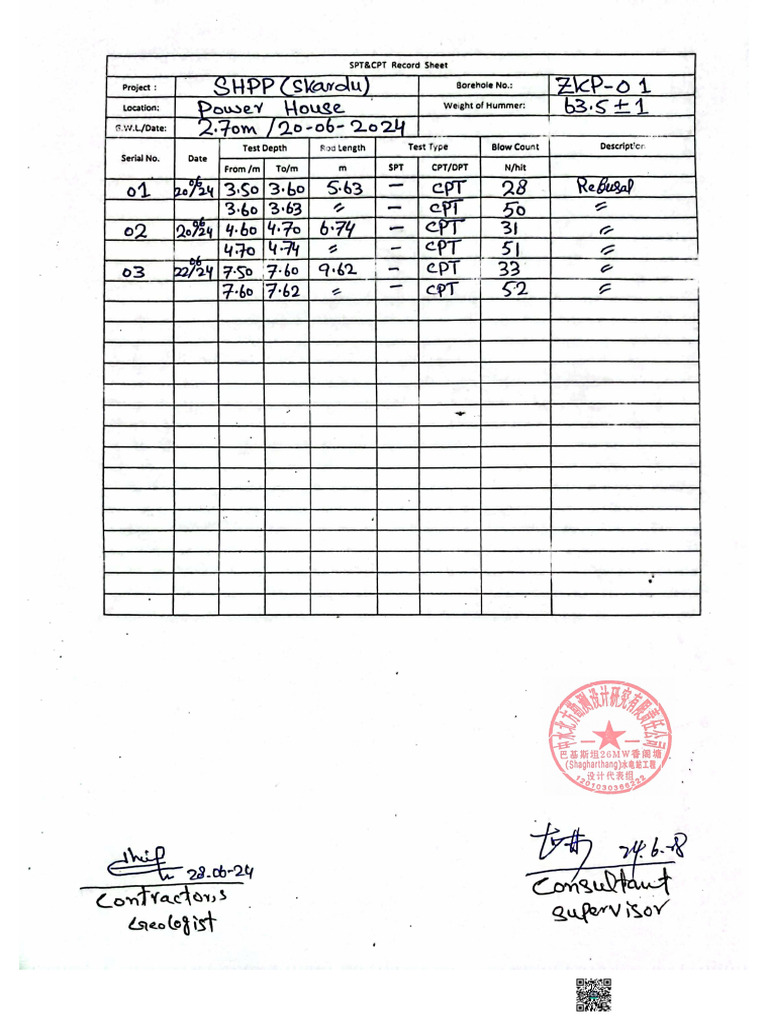 SPT&CPT Record Sheet
Project : SHPP (Skardu) Borehole No.: ZKP-01
Location: Power House Weight of Hummer: 63.5 ± 1
G.W.L/Date: 2.70m / 20-06-2024
Serial No. Date Test Depth Rod Length Test Type Blow Count Description
From /m To/m m SPT CPT/DPT N/hit
01 20/06/24 3.50 3.60 5.63 – CPT 28 Refusal
3.60 3.63 〃 – CPT 50 〃
02 20/06/24 4.60 4.70 6.74 – CPT 31 〃
4.70 4.74 〃 – CPT 51 〃
03 22/06/24 7.50 7.60 9.62 – CPT 33 〃
7.60 7.62 〃 – CPT 52 〃
中水北方勘测设计研究有限责任公司
巴基斯坦26MW香阁塘
(Shagharthang)水电站工程
设计代表组
1201030366222
28-06-24
24.6.28
Contractor,s
Geologist
Consultant
Supervisor